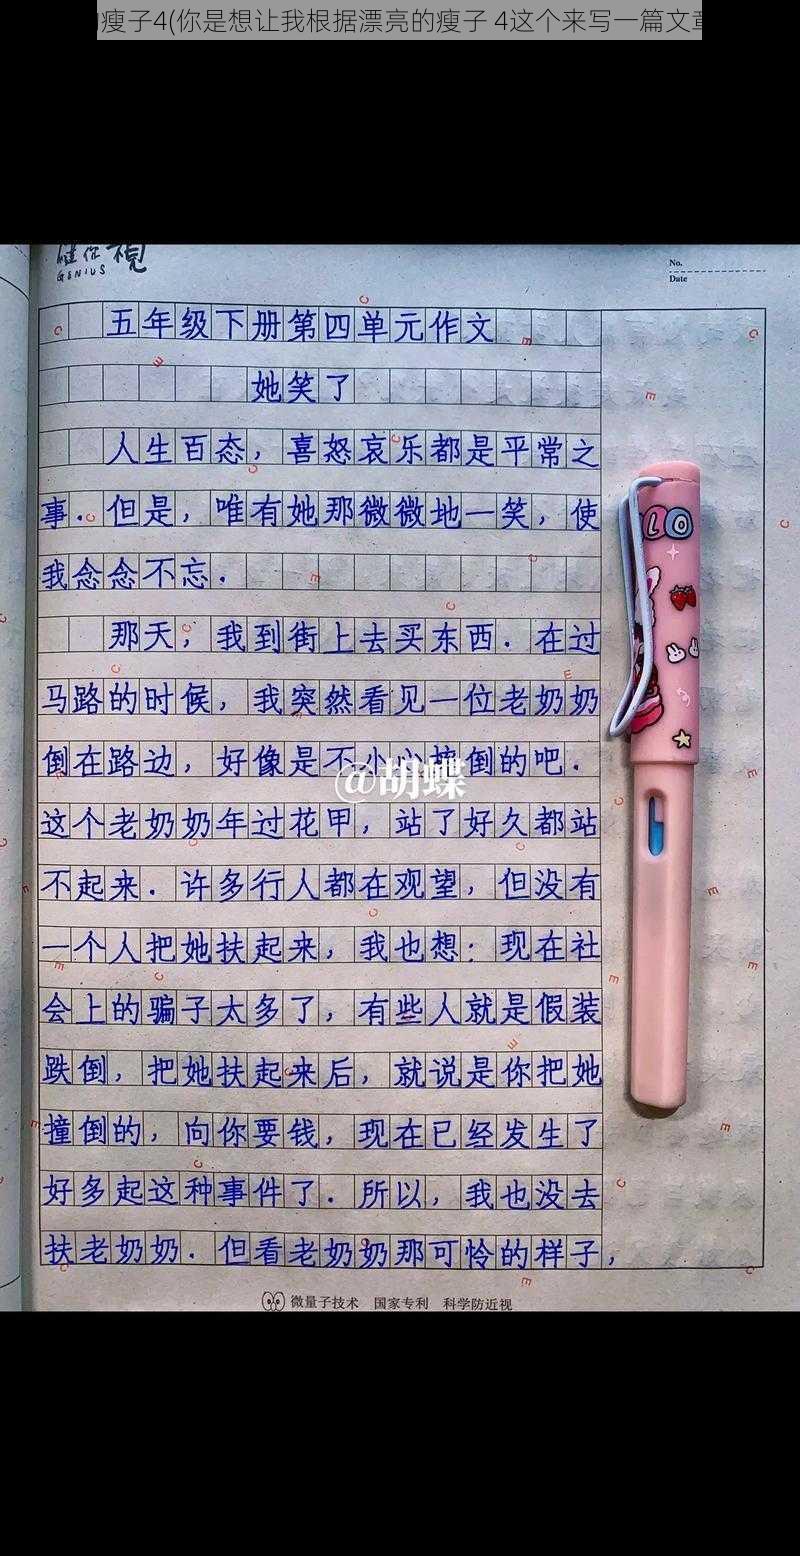 瘦子4(你是想让我根据漂亮的瘦子 4这个来写一篇文章
健你视
GENIUS
No.
Date
五年级下册第四单元作文
她笑了
人生百态，喜怒哀乐都是平常之
事．但是，唯有她那微微地一笑，使
我念念不忘．
那天，我到街上去买东西．在过
马路的时候，我突然看见一位老奶奶
倒在路边，好像是不小心 倒的吧．
@胡蝶
这个老奶奶年过花甲，站了好久都站
不起来．许多行人都在观望，但没有
一个人把她扶起来，我也想：现在社
会上的骗子太多了，有些人就是假装
跌倒，把她扶起来后，就说是你把她
撞倒的，向你要钱，现在已经发生了
好多起这种事件了．所以，我也没去
扶老奶奶．但看老奶奶那可怜的样子，
LO
微量子技术 国家专利 科学防近视